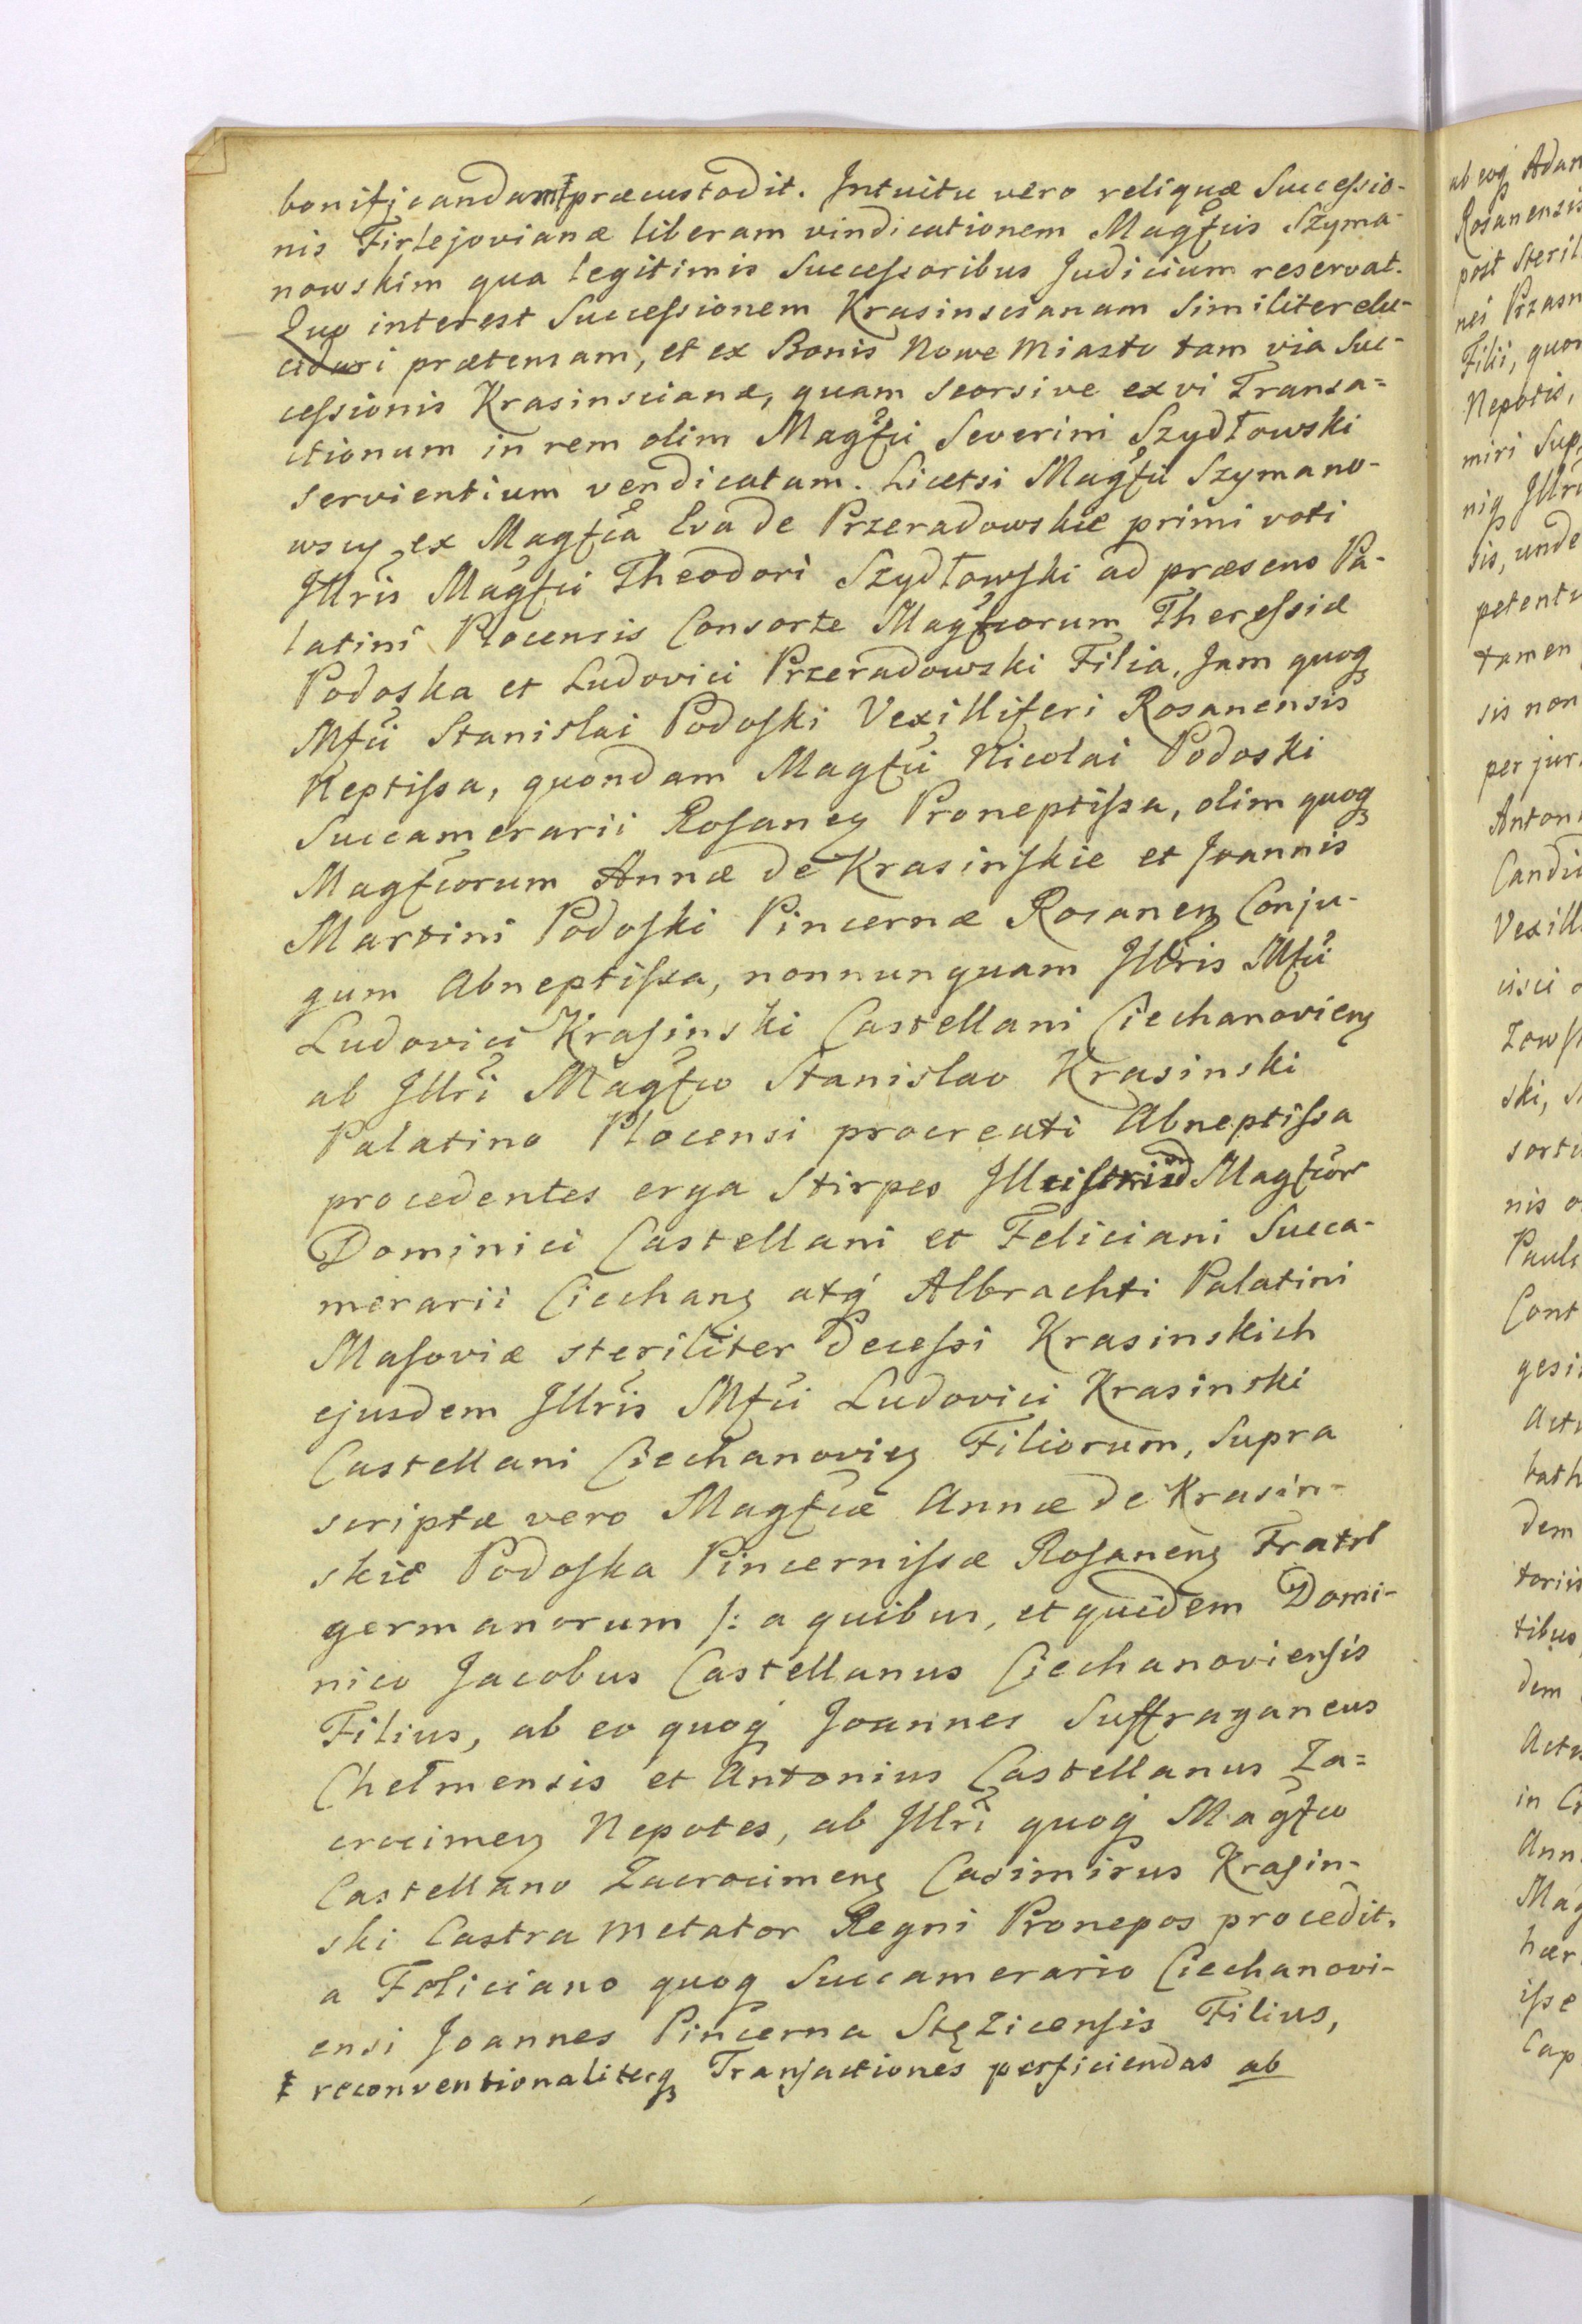 bonificandam ‡ præcustodit. Intuitu vero reliquæ Successio-
nis Firlejovianæ liberam vindicationem Magfcis Szyma-
nowskim qua legitimis Successoribus Judicium reservat.
Quo interest Successionem Krasinscianam Similiter elu-
cidari prætensam, et ex Bonis Nowe Miasto tam via Suc-
cessionis Krasinscianæ, quam Seorsive ex vi Transa=
ctionum in rem olim Magfci Severini Szydłowski
servientium vendicatam. Licetsi Magfci Szymano-
wscy ex Magfca Eva de Przeradowskie primi voti
Illris Magfci Theodori Szydłowski ad præsens Pa-
latini Plocensis Consorte Magfcorum Theressiæ
Podoska et Ludovici Przeradowski Filia, Jam quoq
Mfci Stanislai Podoski Vexilliferi Rosanensis
Neptissa, quondam Magfci Nicolai Podoski
Succamerarii Rosaneg Proneptissa, olim quoq
Magfcorum Annæ de Krasinskie et Joannis
Martini Podoski Pincernæ Rosaneng Conju-
gum Abneptissa, nonnunquam Illris Mfci
Ludovici Krasinski Castellani Ciechanovieng
ab Illri Magfco Stanislao Krasinski
Palatino Plocensi procreati Abneptissa
procedentes erga Stirpes Magfcor
Dominici Castellani et Feliciani Succa-
merarii Ciechang atq Albrachti Palatini
Masoviæ steriliter decessi Krasinskich
ejusdem Illris Mfci Ludovici Krasinski
Castellani Ciechanovieg Filiorum, Supra
scriptæ vero Magfcæ Annæ de Krasin-
skie Podoska Pincernissæ Rosaneng Fratrl
germanorum /: a quibus, et quidem Domi-
nico Jacobus Castellanus Ciechanoviensis
Filius, ab eo quoq Joannes Suffraganeus
Chełmensis et Antonius Castellanus Za=
crocimeg Nepotes, ab Illri quoq Magfco
Castellano Zacrocimeng Casimirus Krasin-
ski Castra Metator Regni Pronepos procedit,
a Feliciano quoq Succamerario Ciechanovi-
ensi Joannes Pincerna Stęzicensis Filius,
‡ reconventionaliterq Transactiones perficiendas ab
ab eoq Adam
Rosanensis
post Steril
nei Przasn
Filii, quor
Nepotis,
miri Sup
niq Illri
sis, unde
petentu
tamen
sis non
per jur
Antoni
Candi
Vexill
cisci
zows
ski, S
sortu
nis o
Paul
Cont
gesi
Actu
bath
dem
toriis
tibus
dem
Actu
in C
Ann
Mag
hær
isse
Cap